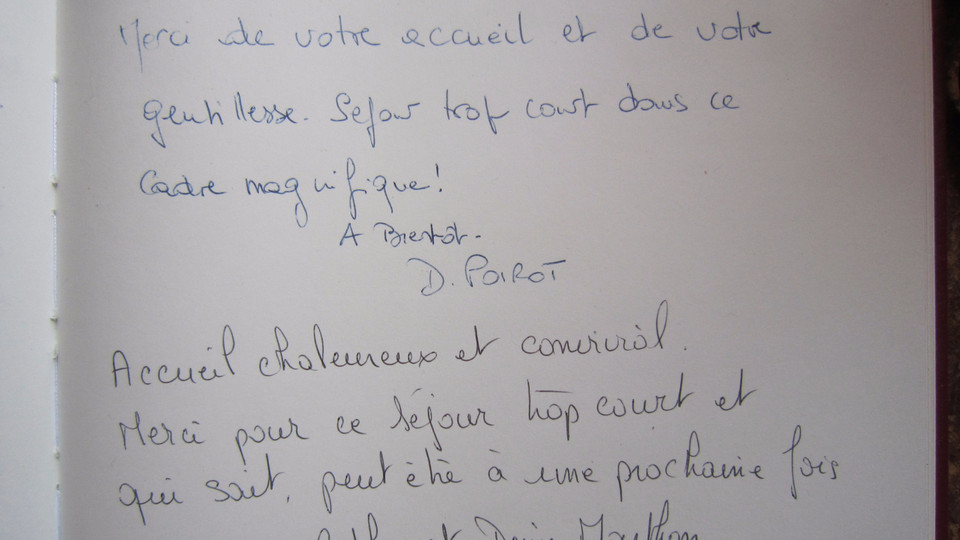 Merci de votre accueil et de votre
gentillesse. Sejour trop court dans ce
Cadre magnifique!
A Bientôt.
D. POIROT
Accueil chaleureux et convivial.
Merci pour ce séjour trop court et
qui sait, peut être à une prochaine fois
et